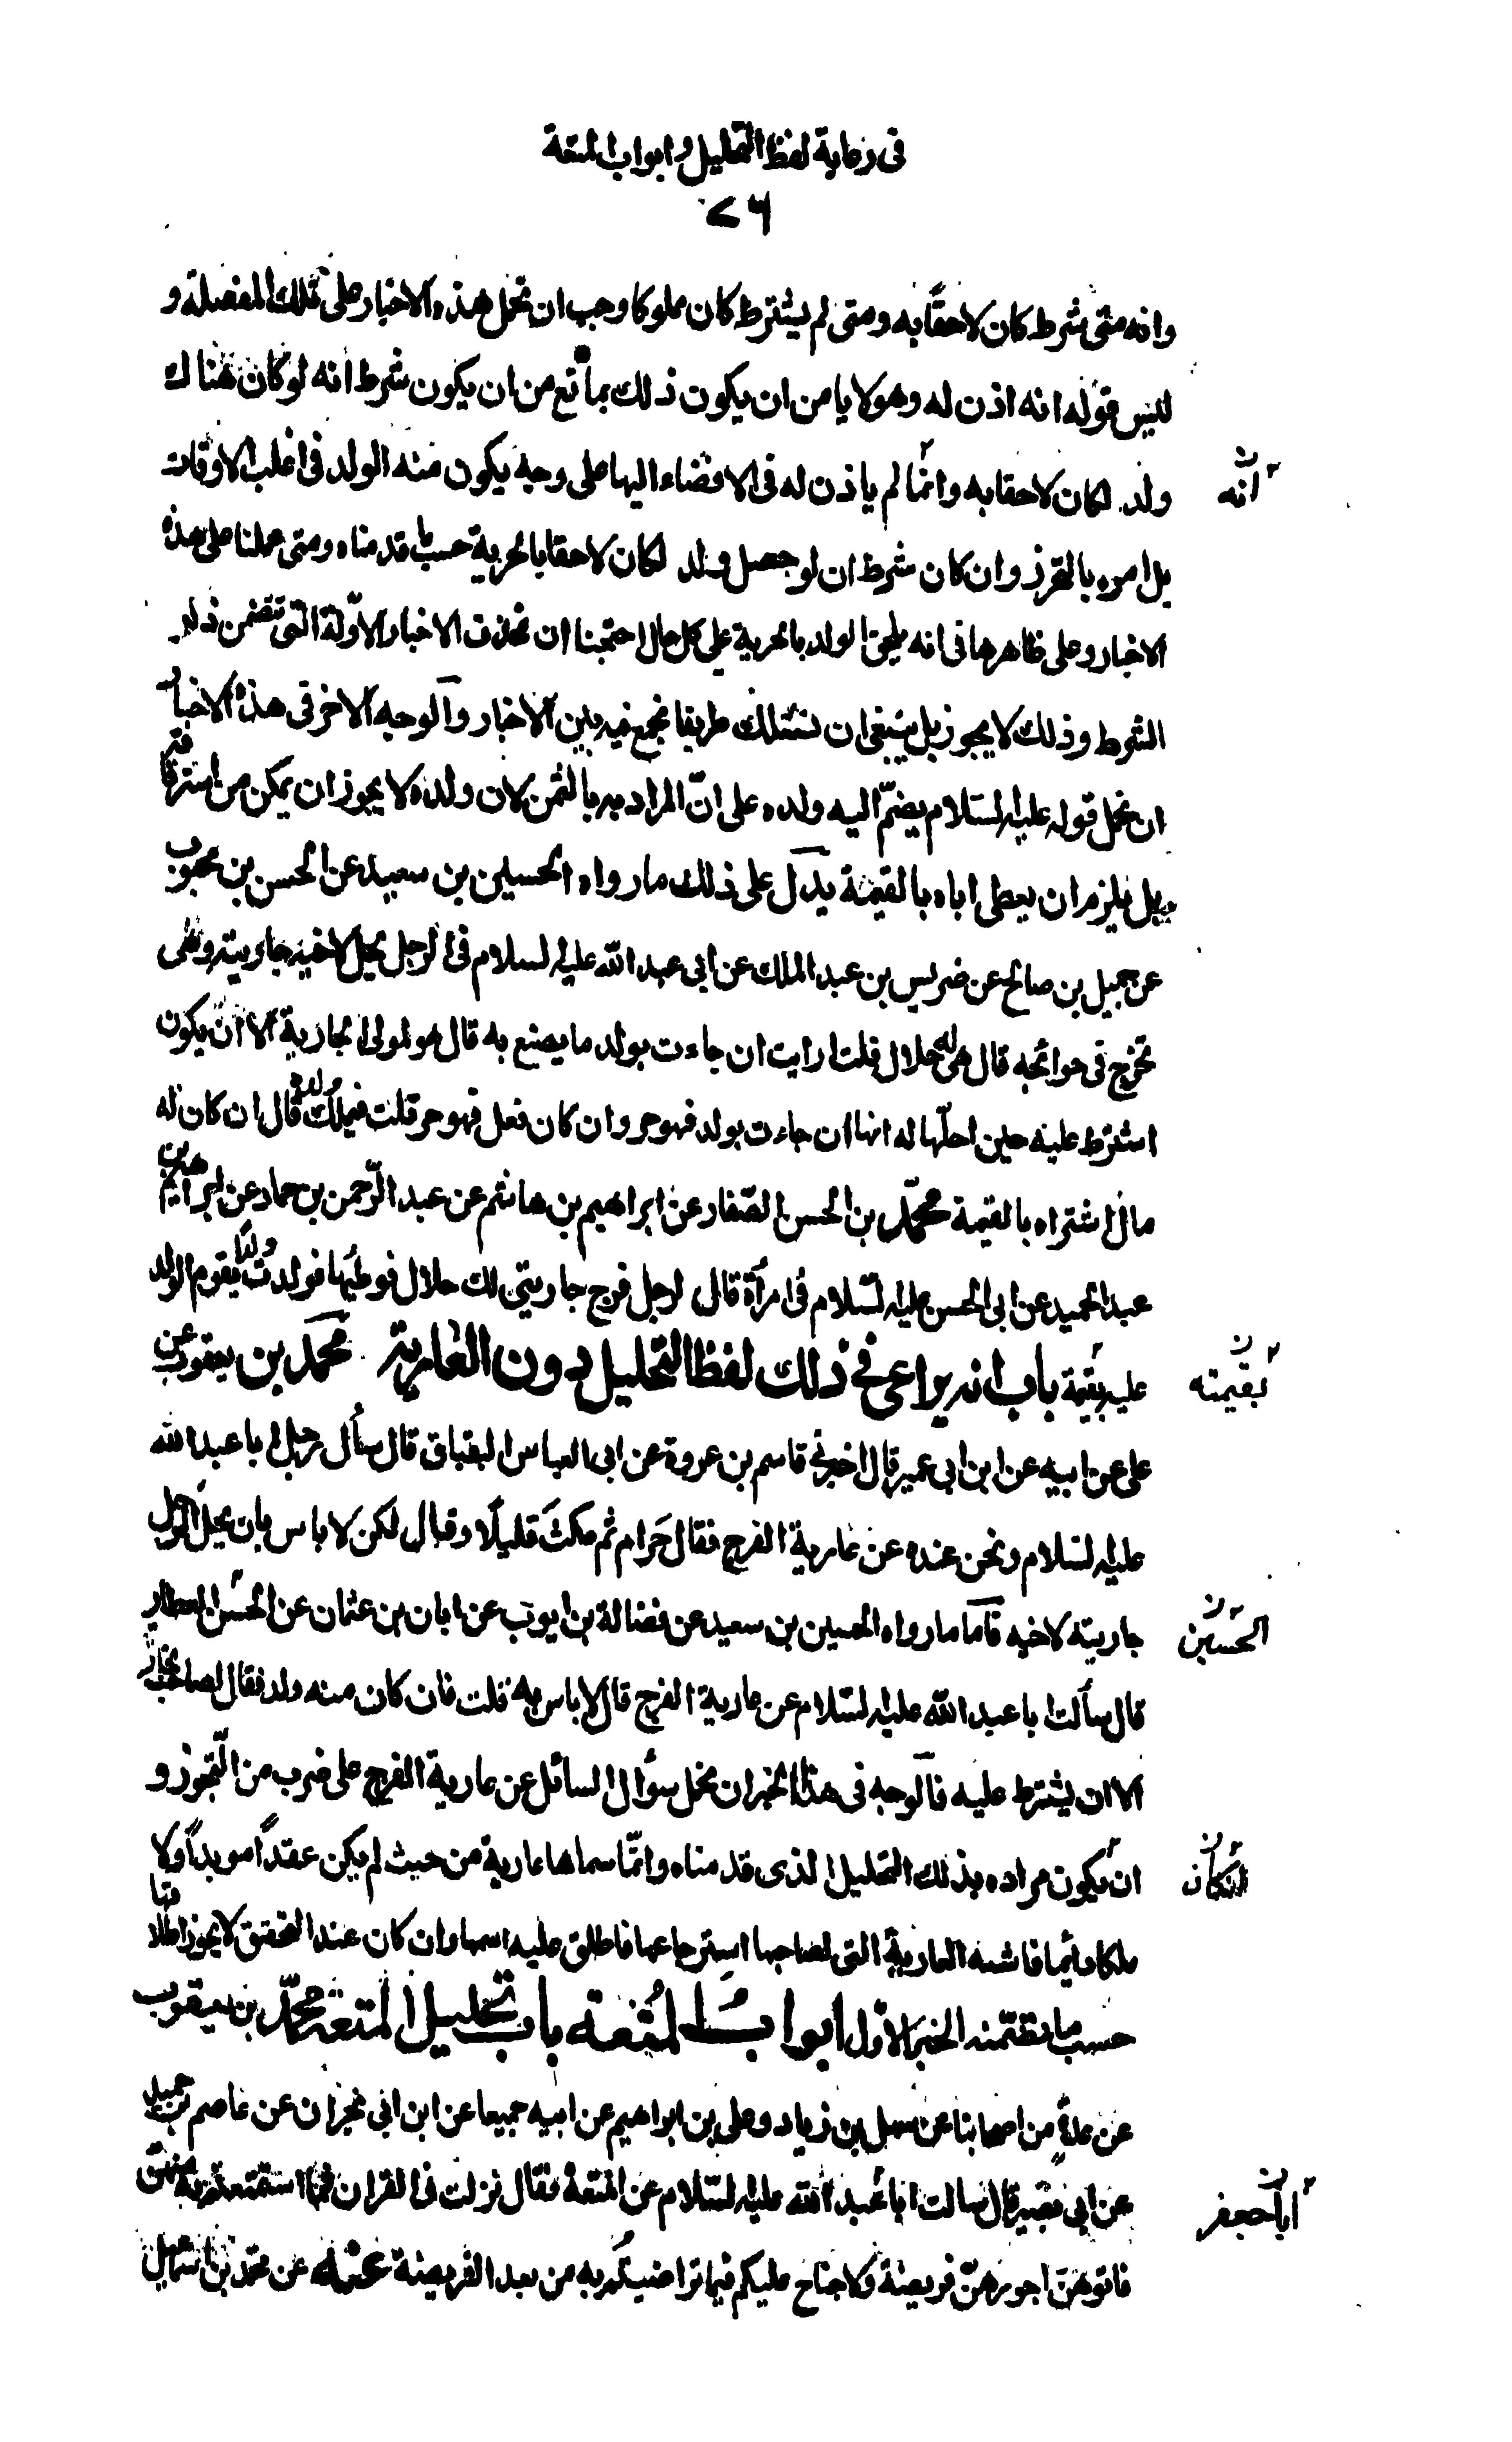 فى رعاية لفظ التحليل وابواب المتعة
٧٦
وانه متى شرط كان لاحقا به ومتى لم يشترط كان مملوكا وجب ان نحمل هذه الاخبار على تلك المفصلة و
ليس قوله انه اذن له وهو لا يامن ان يكون ذلك بمانع من ان يكون شرط انه لو كان هناك
ولد لكان لاحقا به وانما لم ياذن له فى الافضاء اليها على وجه يكون منه الولد فى اغلب الاوقات
انه
بل امره بالتحرز وان كان شرط ان لو حصل ولد لكان لاحقا بالحرية حسب ما قدمناه ومتى عملنا على هذه
الاخبار وعلى ظاهرها فى انه يلحق الولد بالحرية على كل حال احتجنا ان نحذف الاخبار الاولة التى تتضمن ذكر
الشرط وذلك لا يجوز بل ينبغى ان نسلك طريقا نجمع فيه بين الاخبار والوجه الاخر فى هذه الاخبار
ان نحمل قوله عليه السلام يضم اليه ولده على ان المراد به بالثمن لان ولده لا يجوز ان يمكن من استرقاقه
بل يلزم ان يعطى اباه بالقيمة يدل على ذلك ما رواه الحسين بن سعيد عن الحسن بن محبوب
عن جميل بن صالح عن ضريس بن عبد الملك عن ابى عبد الله عليه السلام فى الرجل يحل لاخيه جاريته وهى
تخرج فى حوائجه قال هى له حلال قلت ارايت ان جاءت بولد ما يصنع به قال هو لمولى الجارية الا ان يكون
اشترط عليه حين احلها له انها ان جاءت بولد فهو حر وان كان فعل فهو حر قلت فيملك ولده قال ان كان له
مال اشتراه بالقيمة محمد بن الحسن الصفار عن ابراهيم بن هاشم عن عبد الرحمن بن حماد عن ابراهيم بن
عبد الحميد عن ابى الحسن عليه السلام فى امرأة قال لرجل فرج جاريتى لك حلال فوطيها فولدت ولدا يقوم الولد
عليه بقيمة باب انه يراعى فى ذلك لفظ التحليل دون العارية محمد بن يعقوب عن
بقيمته
على عن ابيه عن ابن ابى عمير قال اخبرنى قاسم بن عروة عن ابى العباس البقباق قال سأل رجل ابا عبد الله
عليه السلام ونحن عنده عن عارية الفرج فقال حرام ثم مكث قليلا وقال لكن لا باس بان يحل الرجل
جاريته لاخيه فاما ما رواه الحسين بن سعيد عن فضالة بن ايوب عن ابان بن عثمان عن الحسن العطار
الحسين
قال سألت ابا عبد الله عليه السلام عن عارية الفرج قال لا باس به قلت فان كان منه ولد فقال لصاحب الجارية
الا ان يشترط عليه فالوجه فى هذا الخبر ان نحمل سؤال السائل عن عارية الفرج على ضرب من التجوز و
ان يكون مراده بذلك التحليل الذى قدمناه وانما سماها عارية من حيث لم يكن عقدا مويدا ولا
ملكا دائما فاشبه العارية التى لصاحبها استرجاعها فاطلق عليه اسمها وان كان عند التحقيق لا يجوز اطلاقها
حسب ما تضمنه الخبر الاول ابواب المتعة باب تحليل المتعة محمد بن يعقوب
عن عدة من اصحابنا عن سهل بن زياد وعلى بن ابراهيم عن ابيه جميعا عن ابن ابى نجران عن عاصم بن حميد
عن ابى بصير قال سالت ابا عبد الله عليه السلام عن المتعة فقال نزلت فى القران فما استمتعتم به منهن
ابا جعفر
فاتوهن اجورهن فريضة ولا جناح عليكم فيما تراضيتم به من بعد الفريضة عنه عن محمد بن اسمعيل